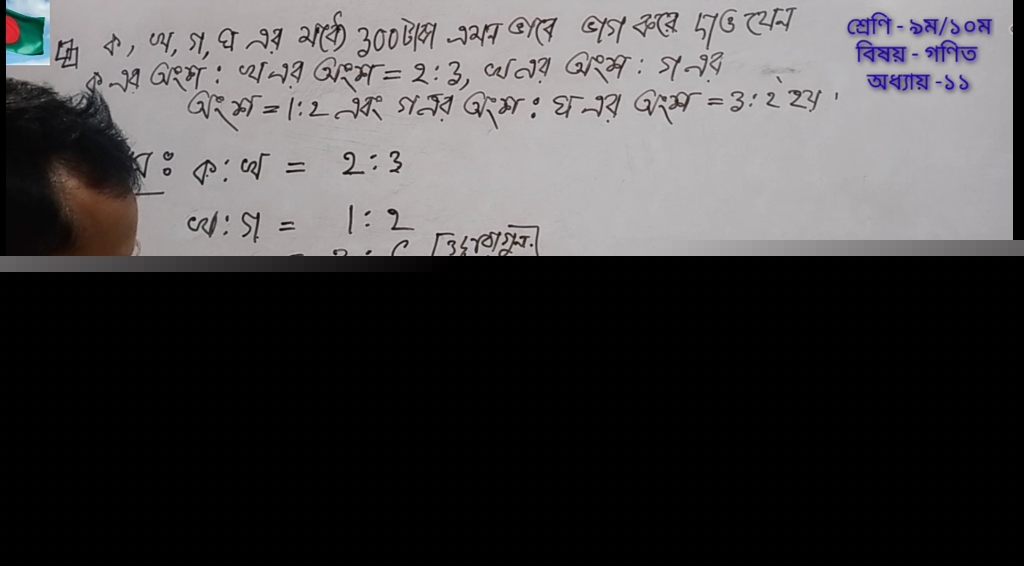 ক, খ, গ, ঘ এর মধ্যে 300টাকা এমন ভাবে ভাগ করে দাও যেন
ক এর অংশ : খ এর অংশ = 2:3, খ এর অংশ : গ এর
অংশ = 1:2 এবং গ এর অংশ : ঘ এর অংশ = 3:2 হয়।
শ্রেণি - ৯ম/১০ম
বিষয় - গণিত
অধ্যায় -১১
ক:খ = 2:3
খ:গ = 1:2